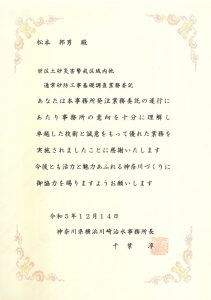 松本 邦男 殿
岩区土砂災害警戒区域内他
通常砂防工事基礎調査業務委託
あなたは本事務所発注業務委託の遂行に
あたり事務所の意向を十分に理解し
卓越した技術と誠意をもって優れた業務を
実施されましたことに感謝いたします
今後とも活力と魅力あふれる神奈川づくりに
御協力を賜りますようお願いします
令和5年12月14日
神奈川県横浜川崎治水事務所長
千葉 淳